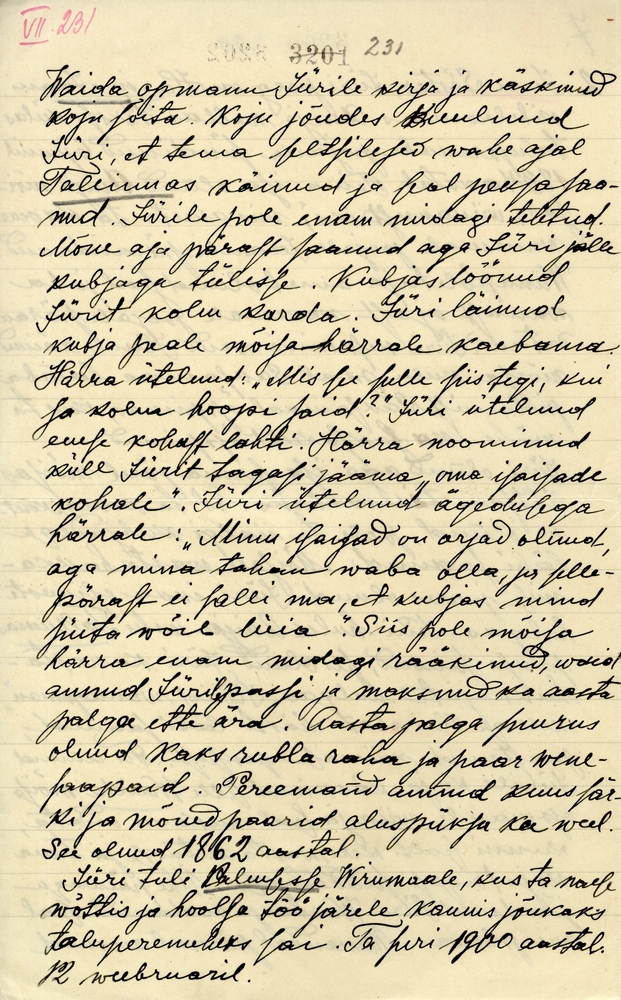 VII. 231
3201 231
Waida opmann Jürile kirja ja käskinud
koju sõita. Koju jõudes kuulnud
Jüri, et tema seltsilesed wahe ajal
Tallinnas käinud ja seal peksa saa-
nud. Jürile pole enam midagi tehtud.
Mõne aja pärast saanud aga Jüri jälle
kubjaga tülisse. Kubjas löönud
Jürit kolm korda. Jüri läinud
kubja peale mõisa härrale kaebama.
Härra ütelnud: „Mis see sulle siis tegi, kui
sa kolm hoopi said?" Jüri ütelnud
enese kohast lahti. Härra noominud
küll Jürit tagasi jääma „oma isaisade
kohale". Jüri ütelnud ägedusega
härrale: „Minu isaisad on orjad olnud,
aga mina tahan waba olla, ja selle-
pärast ei salli ma, et kubjas mind
süita wõib lüia". Siis pole mõisa
härra enam midagi rääkinud, waid
annud Jürile passi ja maksnud ka aasta
palga ette ära. Aasta palga suurus
olnud kaks rubla raha ja paar wene-
saapaid. Peremand annud kuus sär-
ki ja mõned paarid aluspüksa ka weel.
See olnud 1862 aastal.
Jüri tuli Wirumaale, kus ta naese
wõttis ja hoolsa töö järele kaunis jõukaks
taluperemeheks sai. Ta suri 1900 aastal.
12 weebruaril.